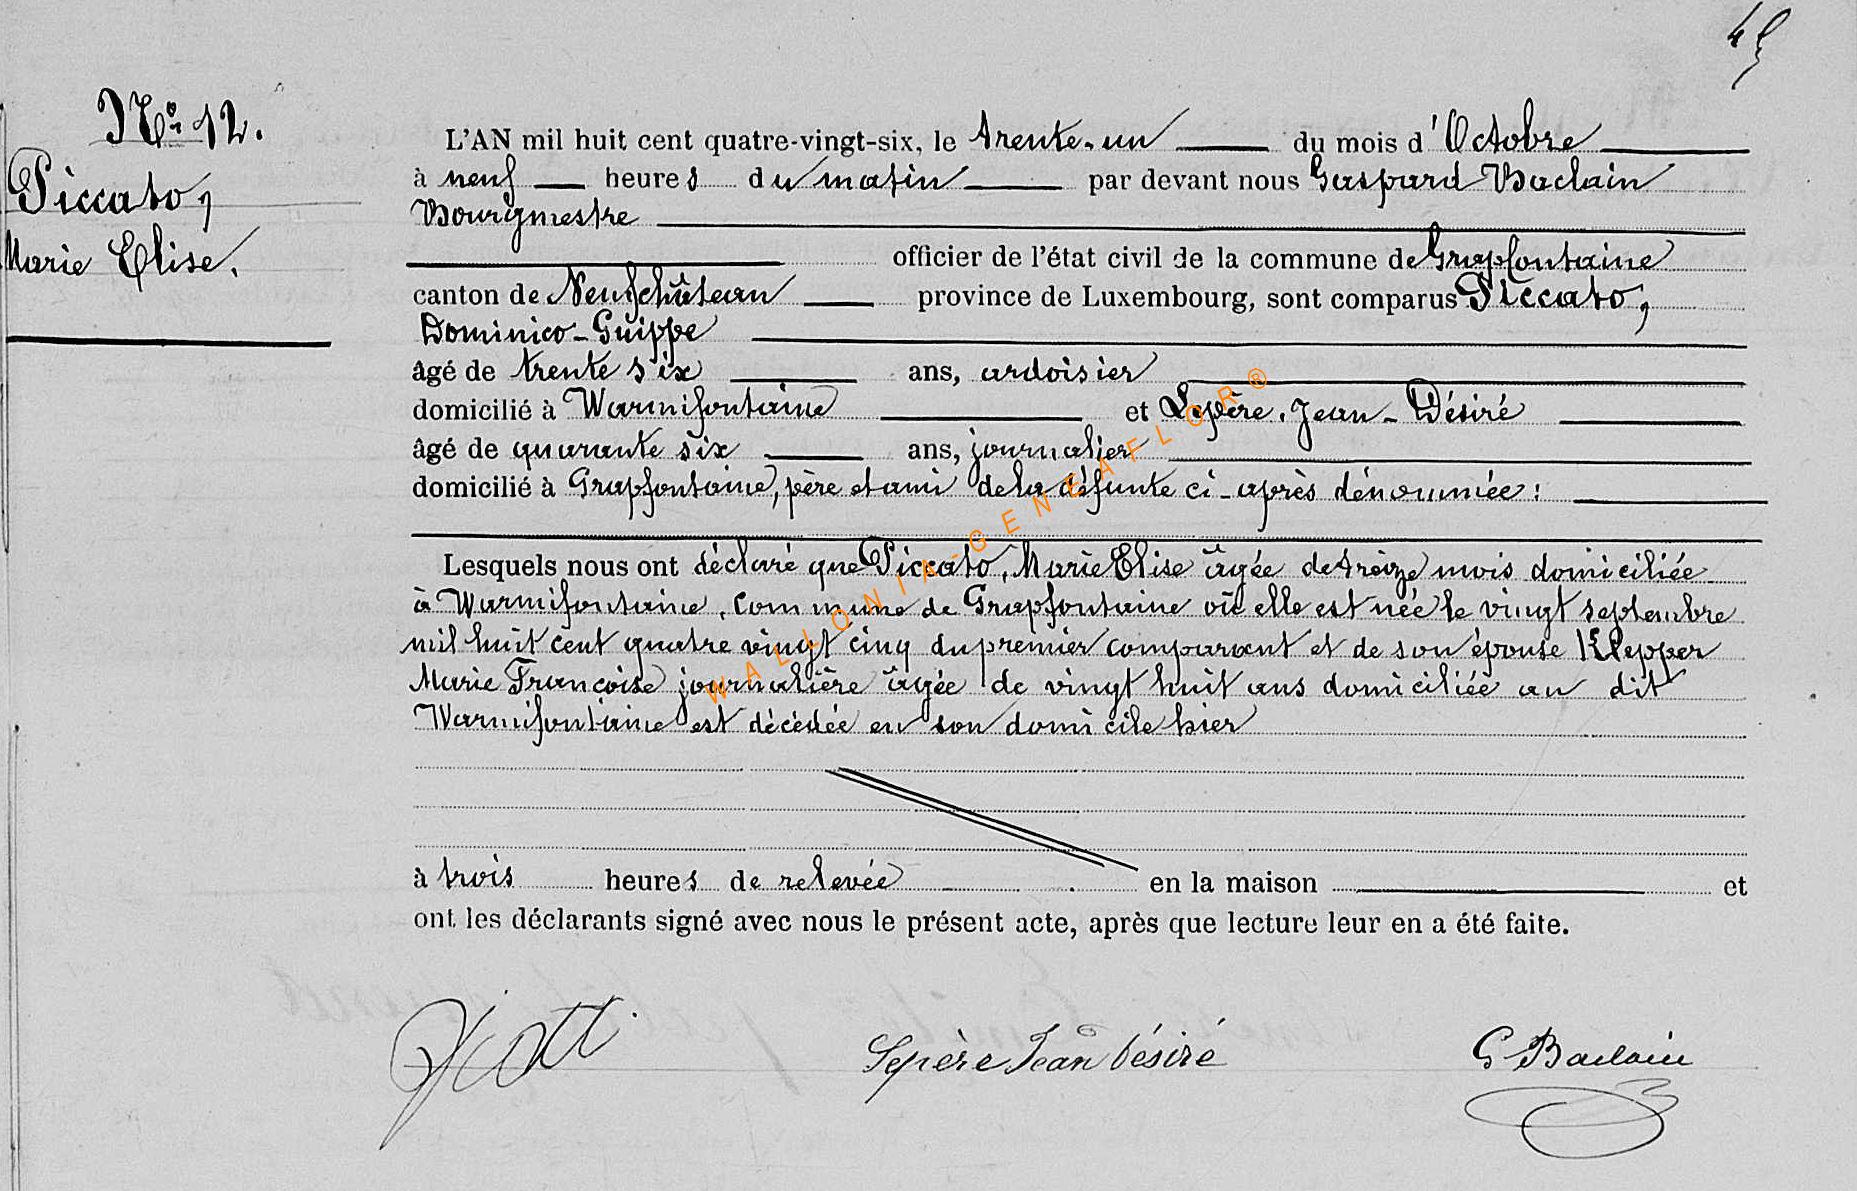 45
N° 12.
Piccato,
Marie Elise.
L'AN mil huit cent quatre-vingt-six, le trente-un du mois d'Octobre
à neuf heures du matin par devant nous Gaspard Baclain
Bourgmestre
officier de l'état civil de la commune de Grapfontaine
canton de Neufchâteau province de Luxembourg, sont comparus Piccato,
Dominico-Guippe
âgé de trente six ans, ardoisier
domicilié à Warmifontaine et Lepère, Jean-Désiré
âgé de quarante six ans, journalier
domicilié à Grapfontaine, père et ami de la défunte ci-après dénommée:
Lesquels nous ont déclaré que Piccato, Marie Elise âgée de treize mois domiciliée
à Warmifontaine, commune de Grapfontaine où elle est née le vingt septembre
mil huit cent quatre vingt cinq du premier comparant et de son épouse Klepper
Marie Françoise journalière âgée de vingt huit ans domiciliée au dit
Warmifontaine est décédée en son domicile hier
à trois heures de relevée en la maison et
ont les déclarants signé avec nous le présent acte, après que lecture leur en a été faite.
Lepère Jean Désiré G Baclain
WALLONIA-GENEAFLOR®